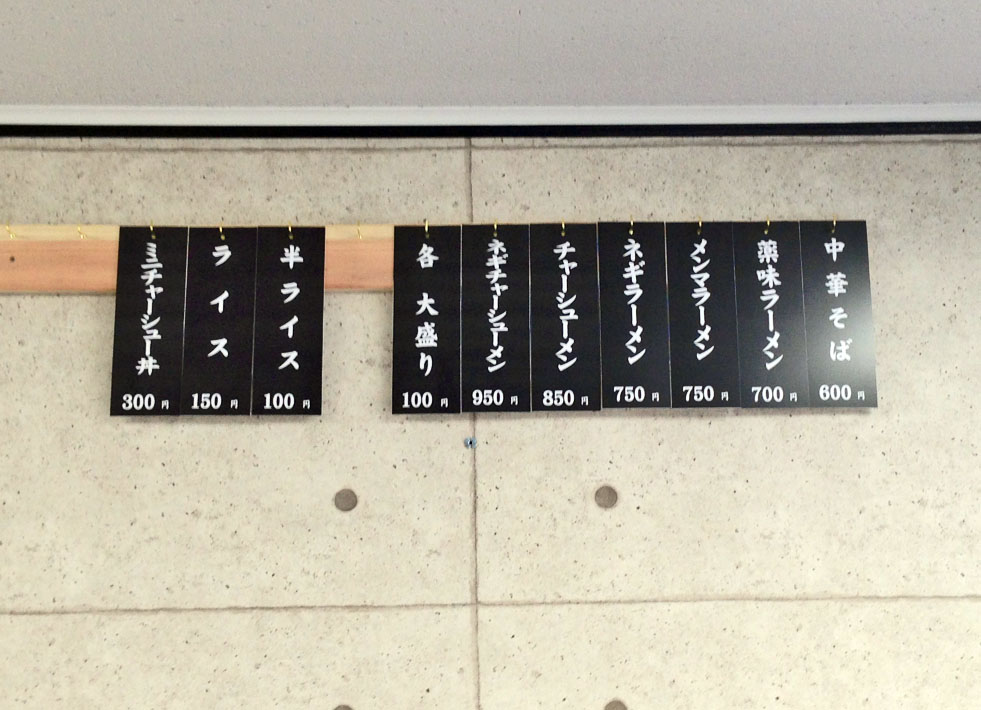 中華そば
600円
薬味ラーメン
700円
メンマラーメン
750円
ネギラーメン
750円
チャーシューメン
850円
ネギチャーシューメン
950円
各 大盛り
100円
半ライス
100円
ライス
150円
ミニチャーシュー丼
300円